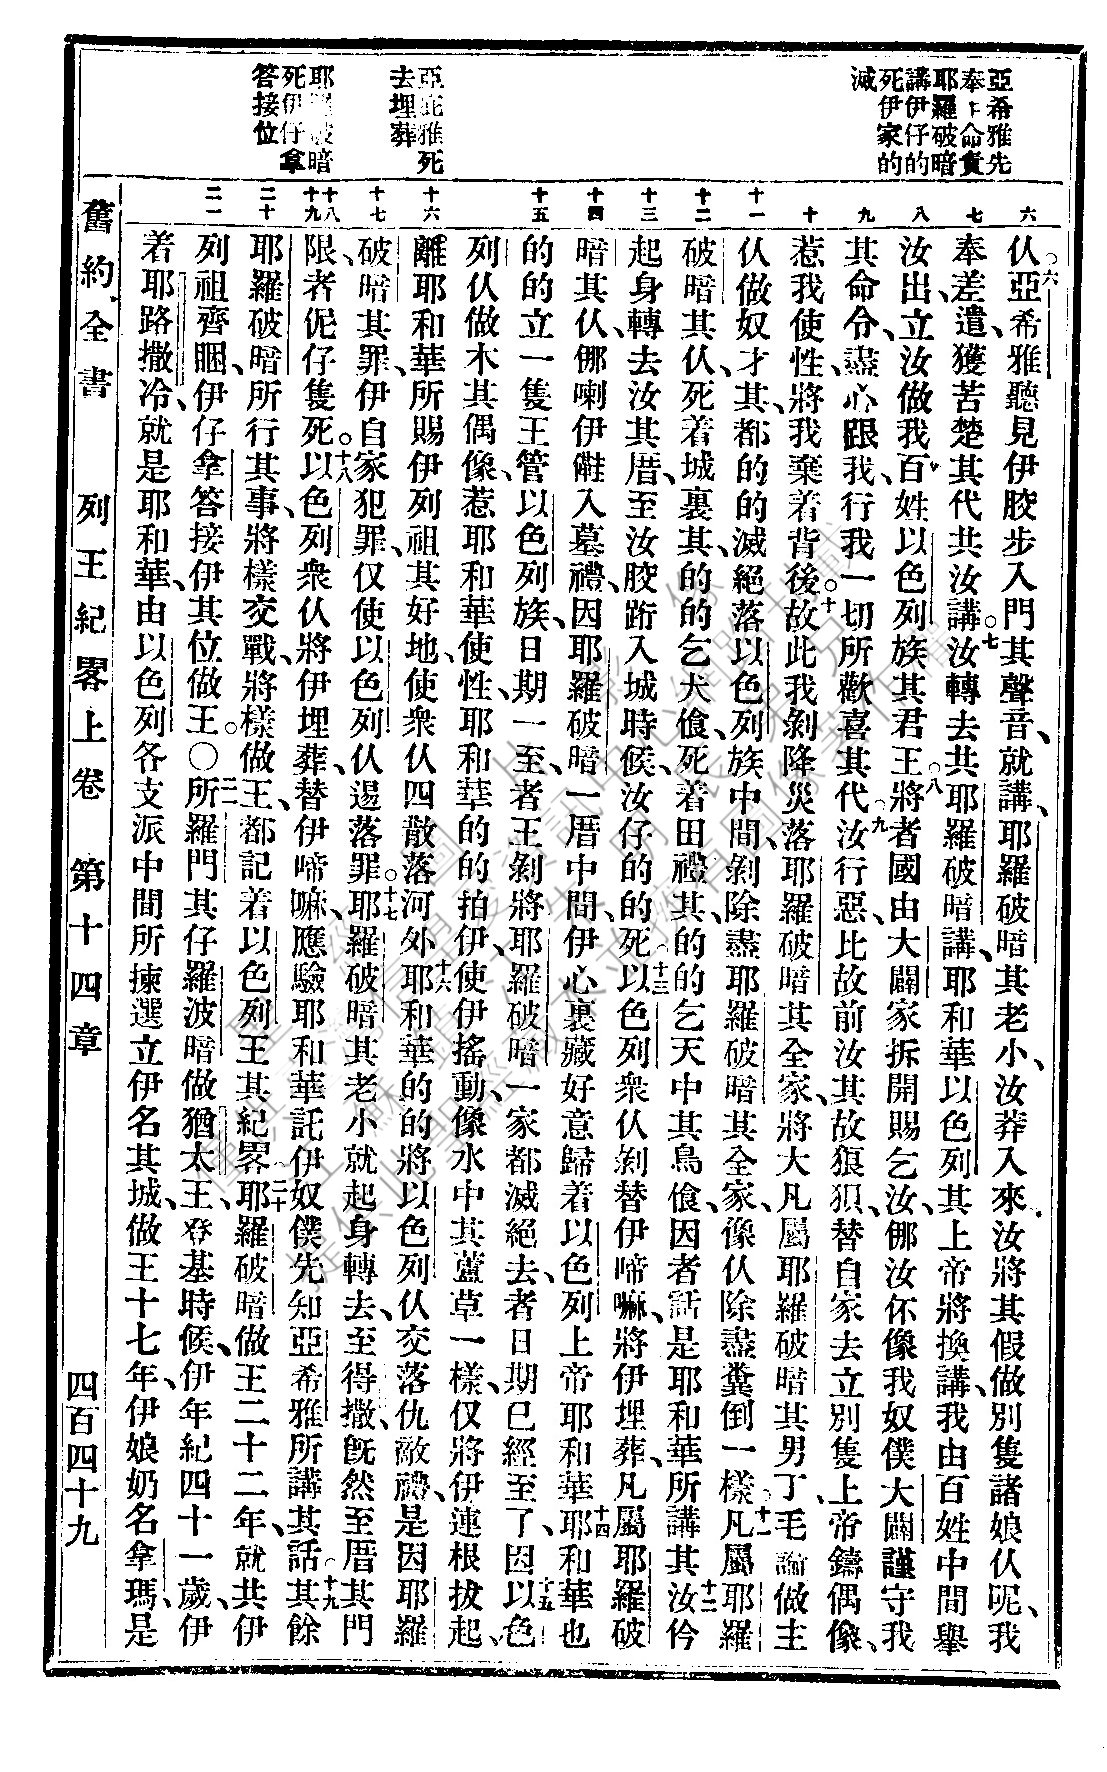 亞希雅先
奉上命責
耶羅破暗
講伊仔的
死伊家的
滅
亞庇雅死
去埋葬
耶羅破暗
死伊仔拿
答接位
六
七
八
九
十
十一
十二
十三
十四
十五
十六
十七
十八
十九
二十
二一
仈。六亞希雅聽見伊骹步入門其聲音、就講、耶羅破暗其老小、汝莽入來、汝將其假做別隻諸娘仈呢、我
奉差遣、獲苦楚其代共汝講。七汝轉去共耶羅破暗講、耶和華以色列其上帝將換講、我由百姓中間舉
汝出、立汝做我百姓以色列族其君王。八將者國由大闢家拆開賜乞汝、那汝伓像我奴僕大闢謹守我
其命令、盡心跟我行我一切所歡喜其代。九汝行惡、比故前汝其故狼狽、替自家去立別隻上帝鑄偶像、
惹我使性、將我棄着背後。十故此我剝降災落耶羅破暗其全家、將大凡屬耶羅破暗其男丁、毛論做主
仈做奴才其、都的的滅絕、落以色列族中間、剝除盡耶羅破暗其全家、像仈除盡糞倒一樣。十一凡屬耶羅
破暗其仈、死着城裏其、的的乞犬飡、死着田禮其、的的乞天中其鳥飡、因者話是耶和華所講其。十二汝仱
起身轉去汝其厝、至汝骹跡入城時候、汝仔的的死。十三以色列衆仈剝替伊啼嘛、將伊埋葬、凡屬耶羅破
暗其仈、那喇伊𠆧入墓禮、因耶羅破暗一厝中間、伊心裏藏好意歸着以色列上帝耶和華。十四耶和華也
的的立一隻王管以色列族、日期一至、者王剝將耶羅破暗一家都滅絕去、者日期已經至了。十五因以色
列仈做木其偶像、惹耶和華使性、耶和華的的拍伊、使伊搖動、像水中其蘆草一樣、仅將伊連根拔起、
離耶和華所賜伊列祖其好地、使衆仈四散落河外。十六耶和華的的將以色列仈交落仇敵禮、是因耶羅
破暗其罪、伊自家犯罪、仅使以色列仈逿落罪。十七耶羅破暗其老小就起身轉去、至得撒、旣然至厝其門
限、者伲仔隻死。十八以色列衆仈將伊埋葬、替伊啼嘛、應驗耶和華託伊奴僕先知亞希雅所講其話。十九其餘
耶羅破暗所行其事、將樣交戰、將樣做王、都記着以色列王其紀畧。二十耶羅破暗做王二十二年、就共伊
列祖齊睏、伊仔拿答接伊其位做王。○二一所羅門其仔羅波暗做猶太王、登基時候、伊年紀四十一歲、伊
着耶路撒冷、就是耶和華、由以色列各支派中間所揀選立伊名其城、做王十七年、伊娘奶名拿瑪、是
舊約全書　列王紀畧上卷　第十四章　四百四十九